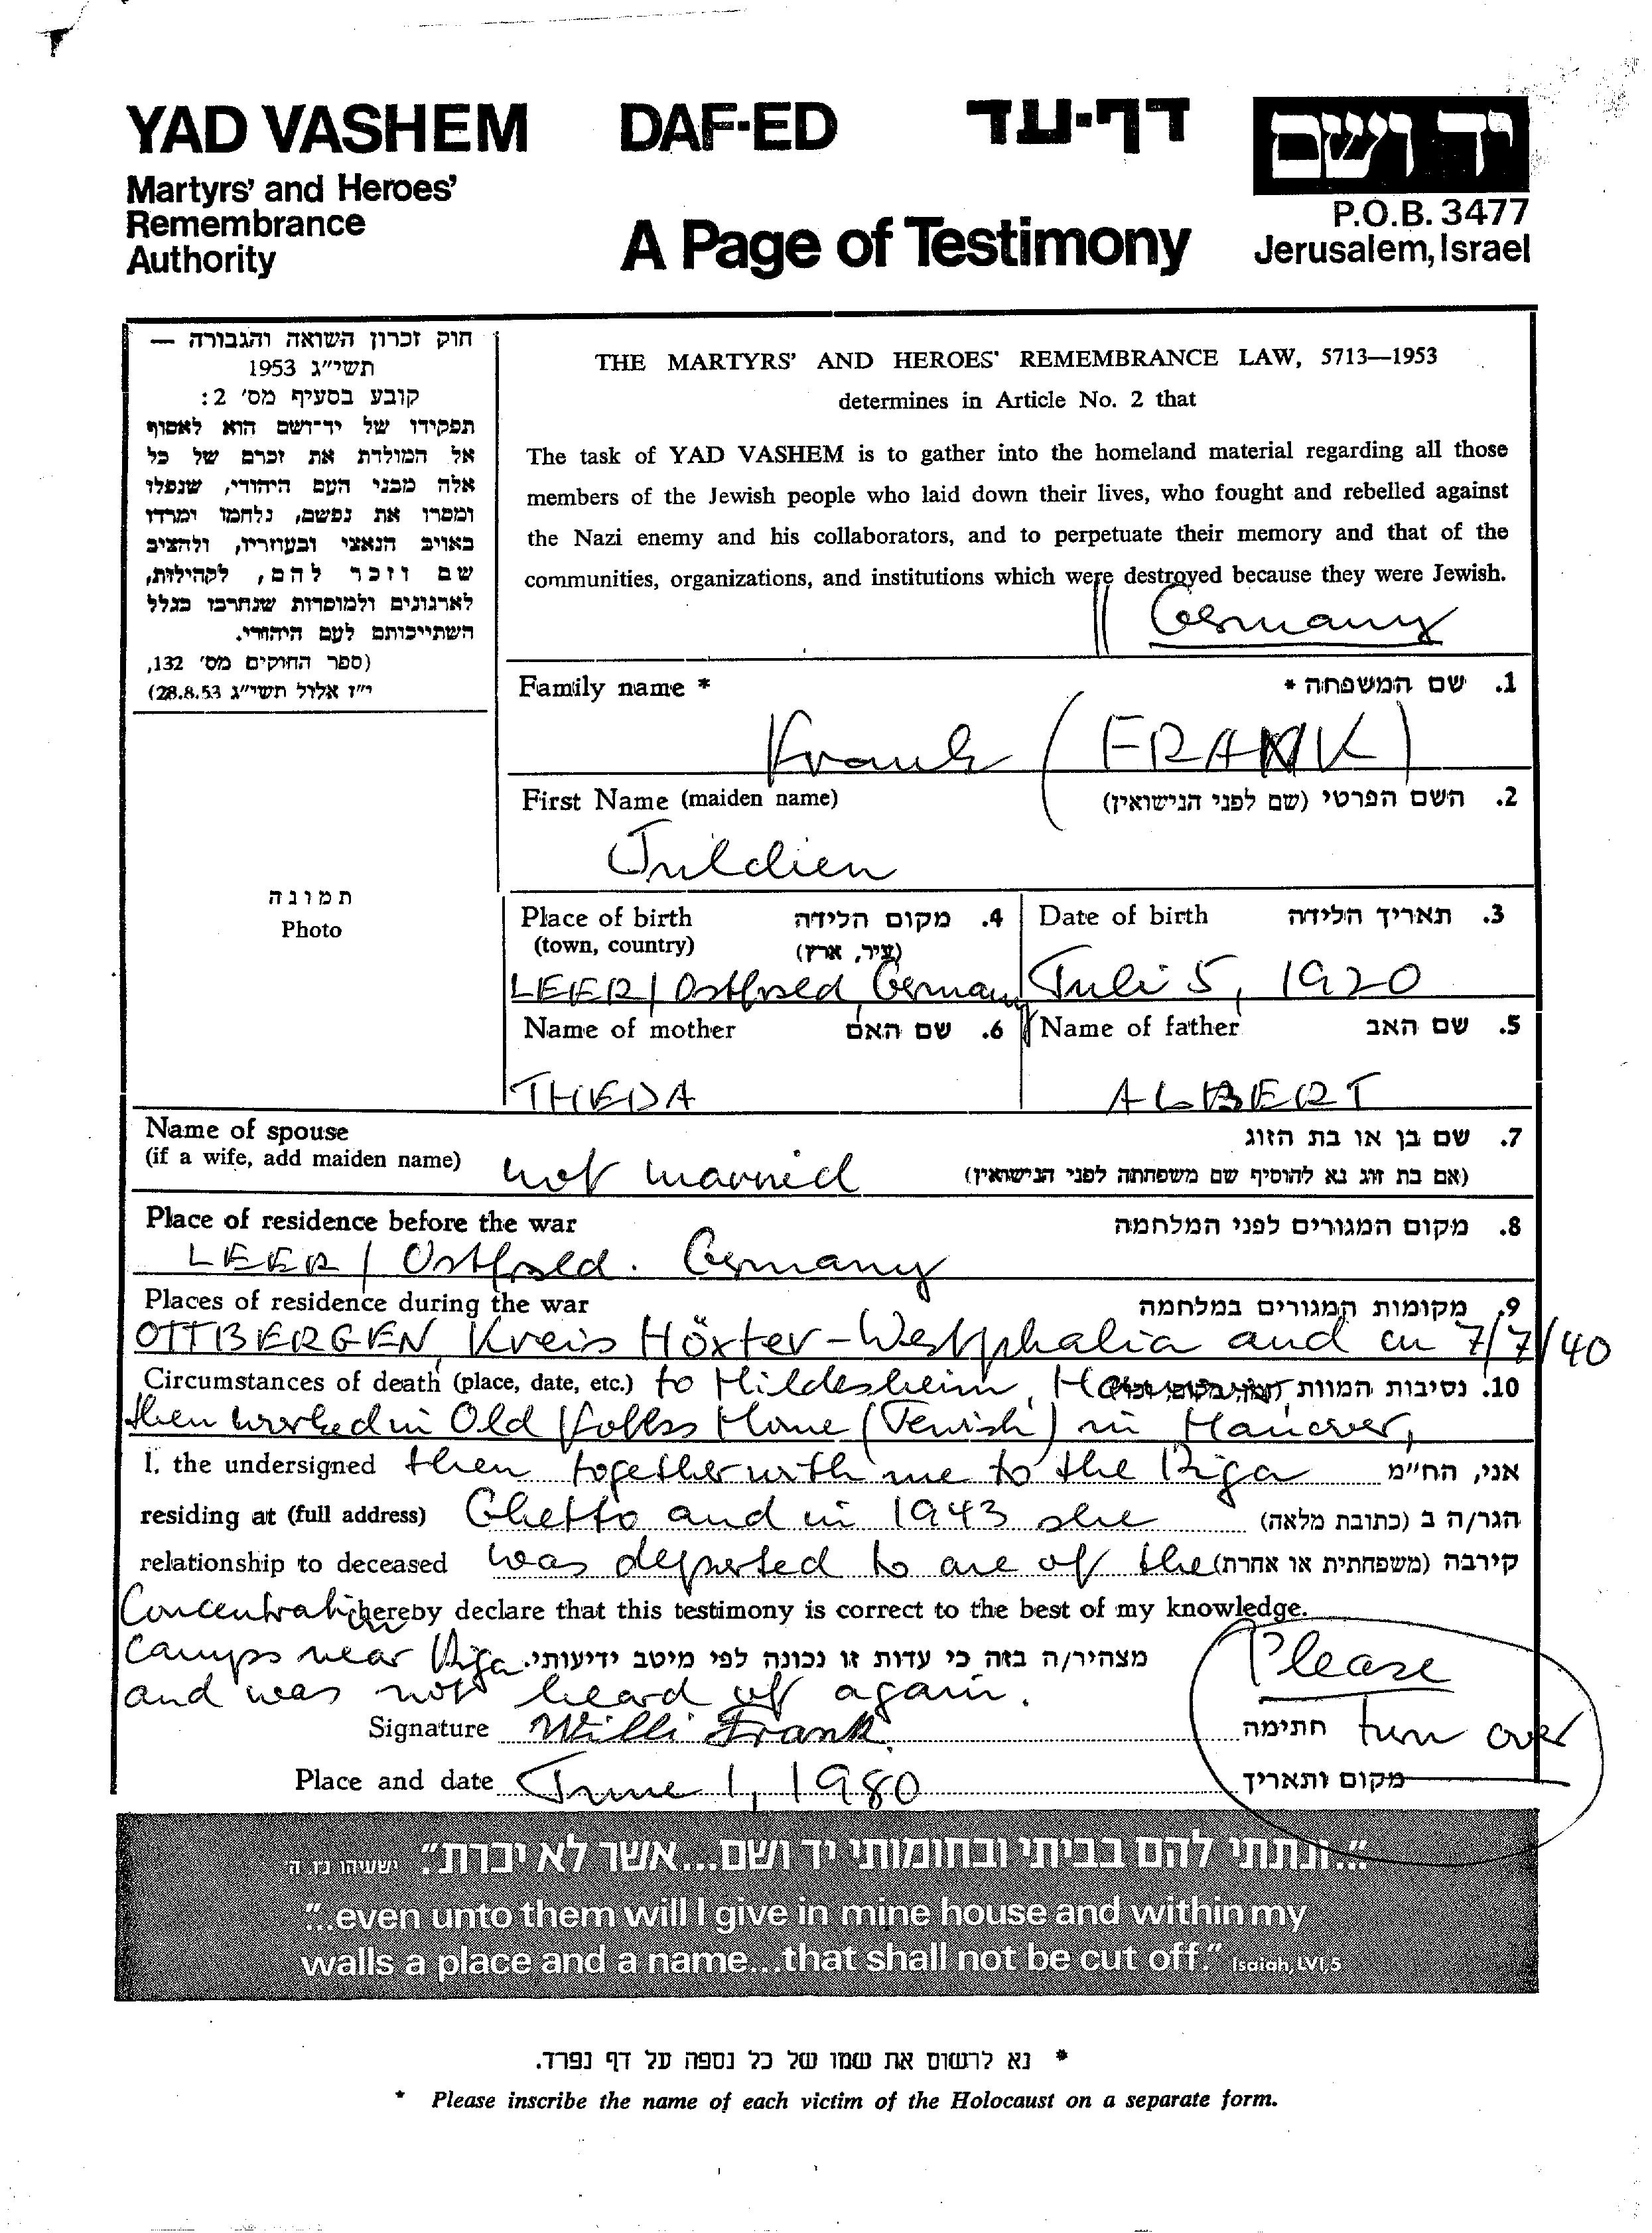 YAD VASHEM DAF-ED דף-עד יד ושם
Martyrs' and Heroes'
Remembrance
Authority
A Page of Testimony
P.O.B. 3477
Jerusalem, Israel
חוק זכרון השואה והגבורה —
תשי"ג 1953
קובע בסעיף מס' 2:
תפקידו של יד-ושם הוא לאסוף
אל המולדת את זכרם של כל
אלה מבני העם היהודי, שנפלו
ומסרו את נפשם, נלחמו ומרדו
באויב הנאצי ובעוזריו, ולהציב
שם וזכר להם, לקהילות,
לארגונים ולמוסדות שנחרבו בגלל
השתייכותם לעם היהודי.
(ספר החוקים מס' 132,
י"ז אלול תשי"ג 28.8.53)
THE MARTYRS' AND HEROES' REMEMBRANCE LAW, 5713—1953
determines in Article No. 2 that
The task of YAD VASHEM is to gather into the homeland material regarding all those
members of the Jewish people who laid down their lives, who fought and rebelled against
the Nazi enemy and his collaborators, and to perpetuate their memory and that of the
communities, organizations, and institutions which were destroyed because they were Jewish.
Germany
Family name * 1. שם המשפחה *
(FRANK)
First Name (maiden name) 2. השם הפרטי (שם לפני הנישואין)
Julchen
תמונה
Photo
Place of birth 4. מקום הלידה
(town, country) (עיר, ארץ)
LEER / Ostfrsld Germany
Date of birth 3. תאריך הלידה
Juli 5, 1920
Name of mother 6. שם האם
THEDA
Name of father 5. שם האב
ALBERT
Name of spouse 7. שם בן או בת הזוג
(if a wife, add maiden name) not married (אם בת זוג נא להוסיף שם משפחתה לפני הנישואין)
Place of residence before the war 8. מקום המגורים לפני המלחמה
LEER / Ostfrsld. Germany
Places of residence during the war 9. מקומות המגורים במלחמה
OTTBERGEN, Kreis Höxter-Westphalia and on 7/7/40
Circumstances of death (place, date, etc.) to Hildesheim, 10. נסיבות המוות
then worked in Old Folks Home (Jewish) in Hanover,
I, the undersigned then together with me to the Riga אני, הח"מ
residing at (full address) Ghetto and in 1943 she הגר/ה ב (כתובת מלאה)
relationship to deceased was deported to one of the קירבה (משפחתית או אחרת)
Concentration hereby declare that this testimony is correct to the best of my knowledge.
Camps near Riga מצהיר/ה בזה כי עדות זו נכונה לפי מיטב ידיעותי.
and was not heard of again.
Please
turn over
Signature Willi Frank. חתימה
Place and date June 1, 1980 מקום ותאריך
"...ונתתי להם בביתי ובחומותי יד ושם...אשר לא יכרת." ישעיהו נו, ה
"...even unto them will I give in mine house and within my
walls a place and a name...that shall not be cut off." Isaiah, LVI,5
* נא לרשום את שמו של כל נספה על דף נפרד.
* Please inscribe the name of each victim of the Holocaust on a separate form.